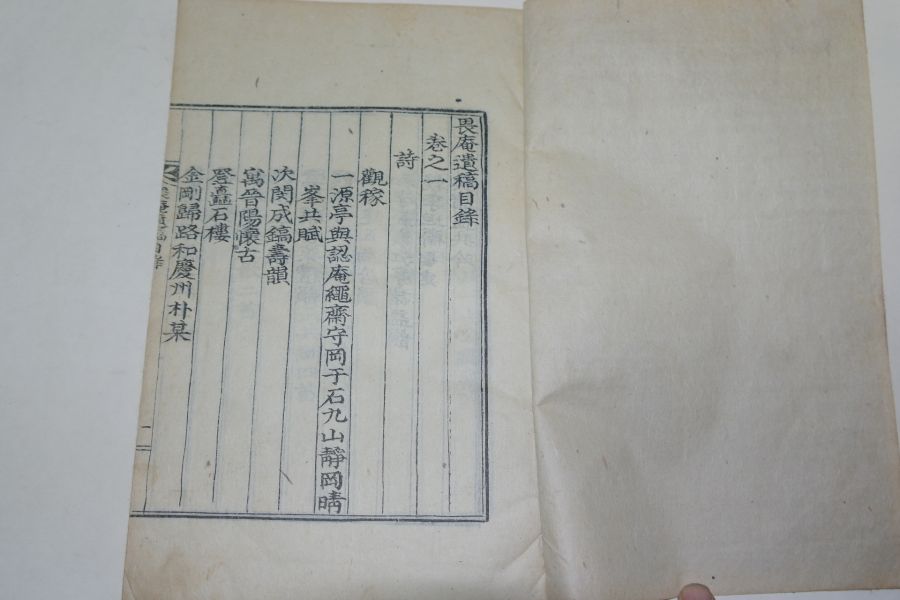 畏庵遺稿目錄
卷之一
詩
觀稼
一源亭與認庵繩齋守岡于石九山靜岡晴
峯共賦
次閔成鎬壽韻
寓晉陽懷古
登矗石樓
金剛歸路和慶州朴某
畏庵遺稿目錄
一